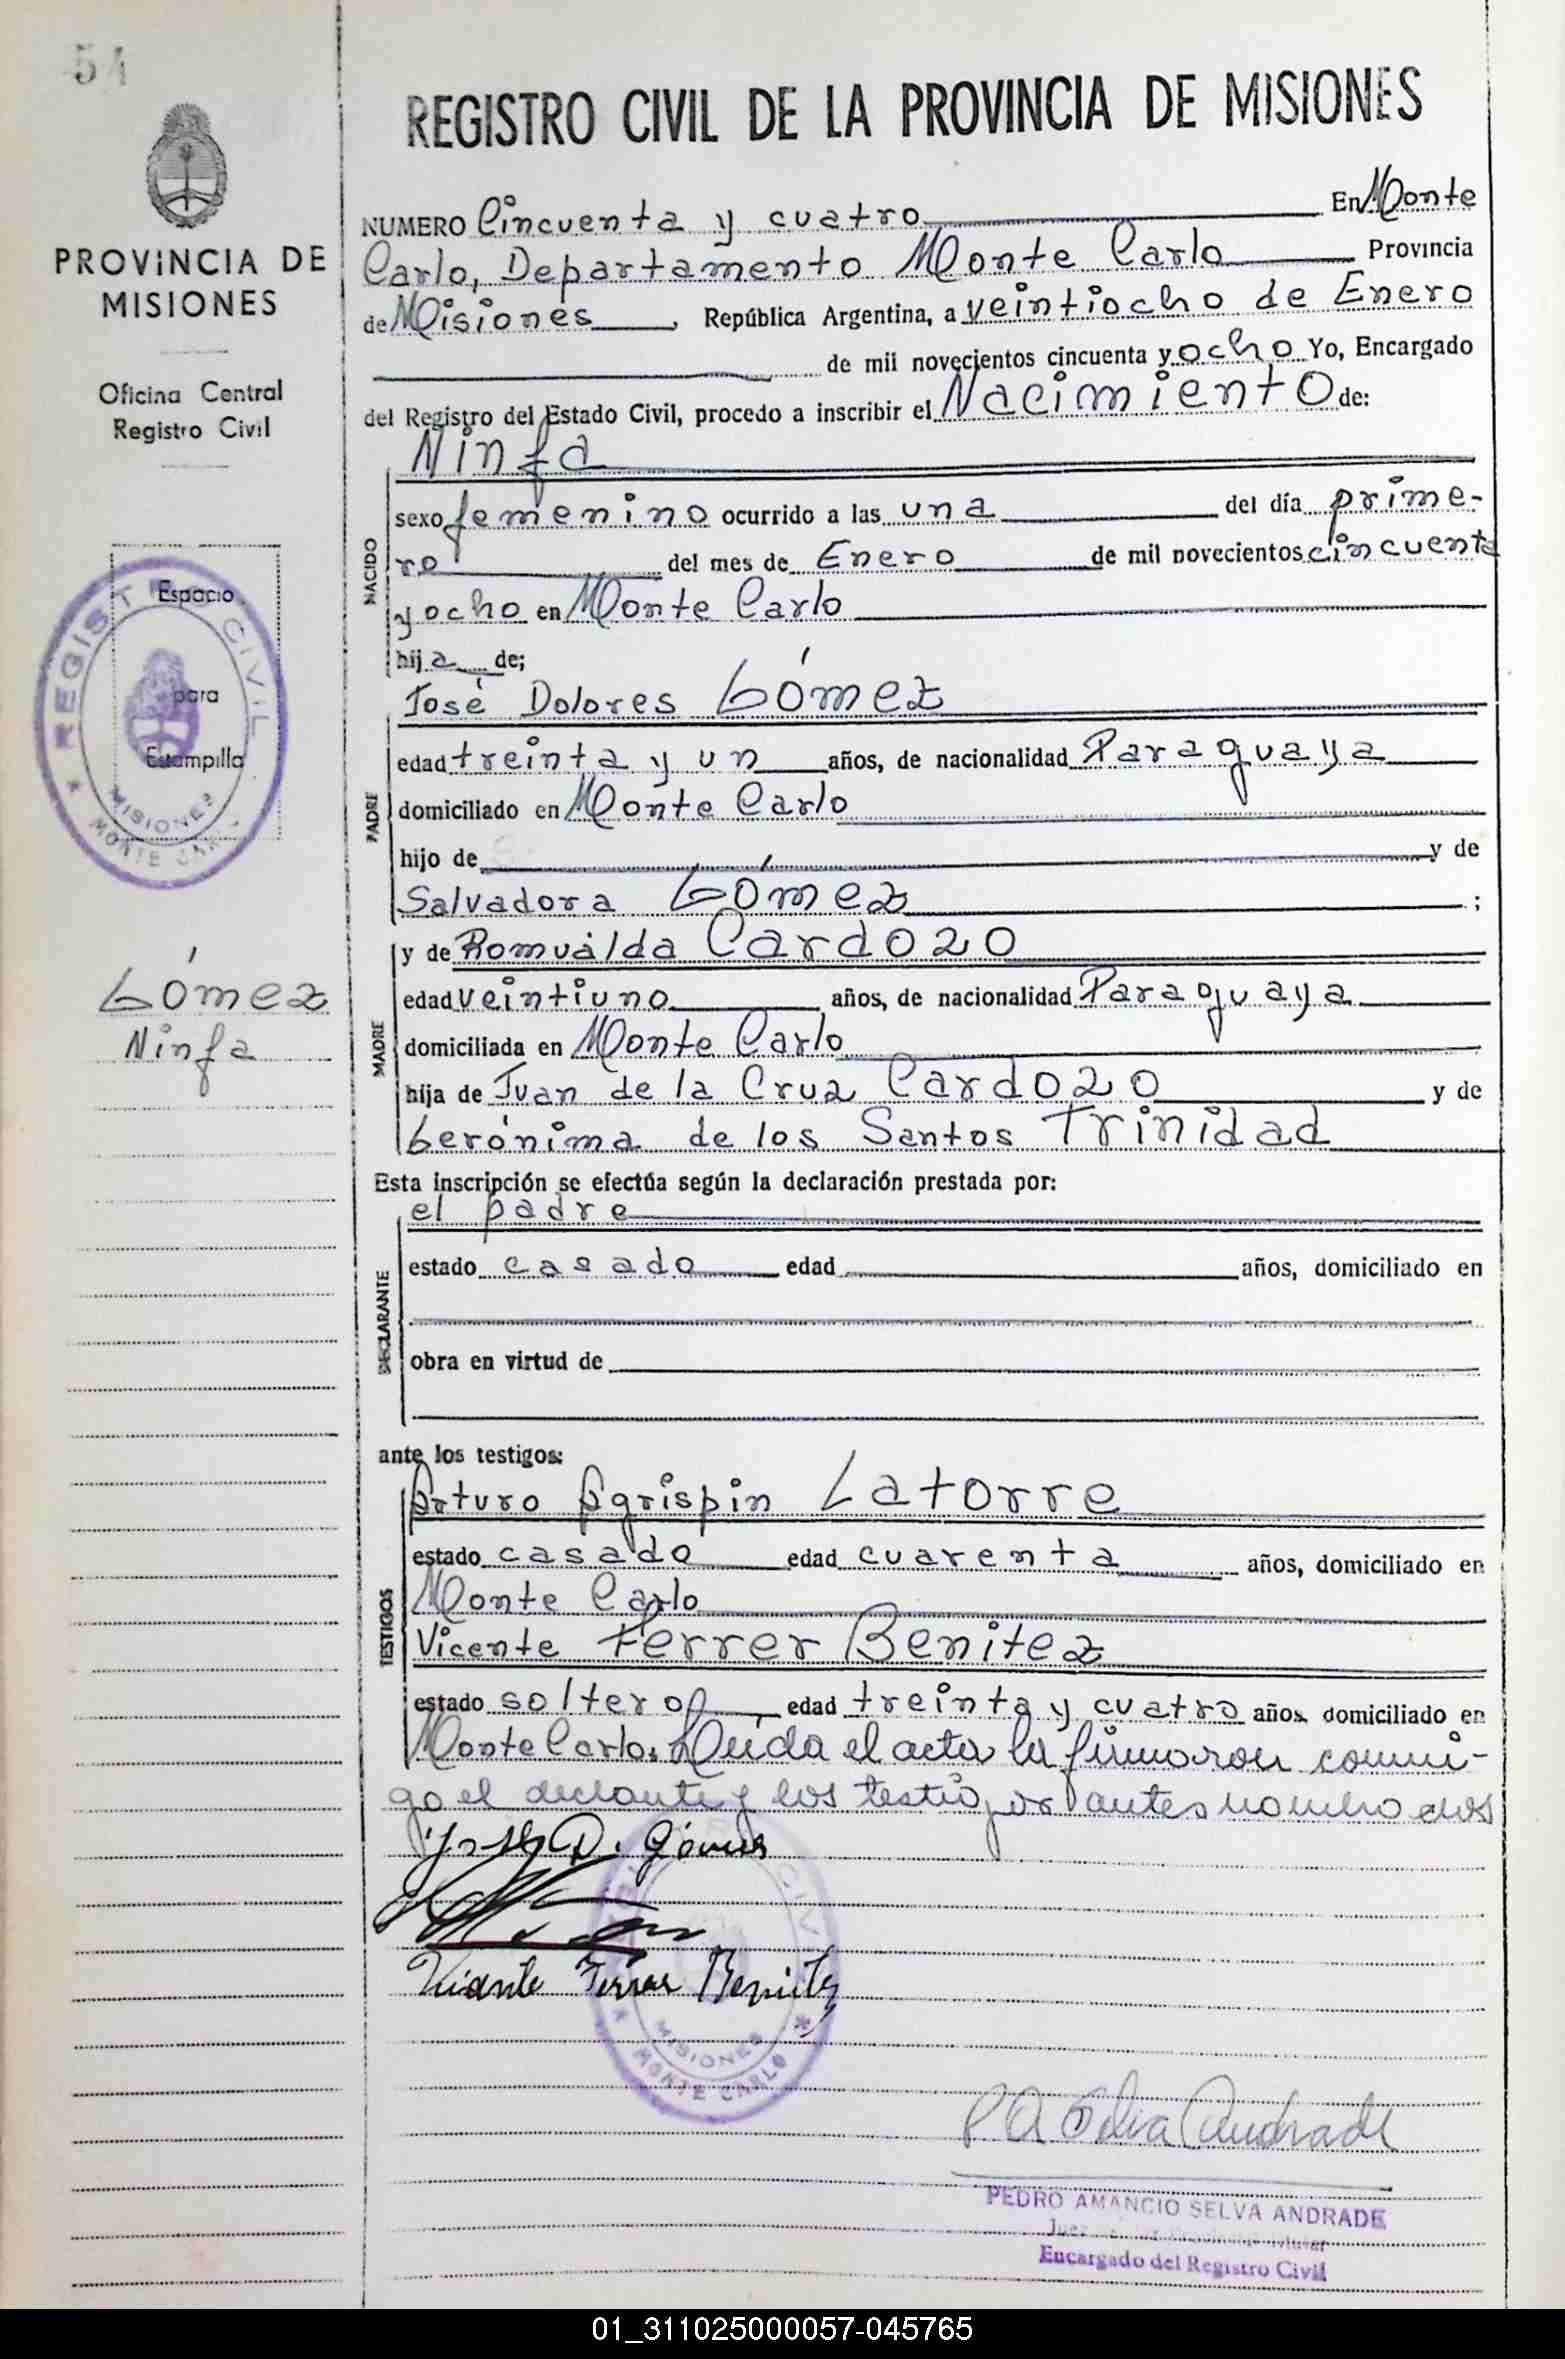 54
REGISTRO CIVIL DE LA PROVINCIA DE MISIONES
PROVINCIA DE
MISIONES
Oficina Central
Registro Civil
Espacio
para
Estampilla
REGISTRO CIVIL
MISIONES
MONTE CARLO
Gómez
Ninfa
NUMERO Cincuenta y cuatro En Monte
Carlo, Departamento Monte Carlo Provincia
de Misiones, República Argentina, a veintiocho de Enero
de mil novecientos cincuenta y ocho Yo, Encargado
del Registro del Estado Civil, procedo a inscribir el Nacimiento de:
Ninfa
NACIDO
sexo femenino ocurrido a las una del día prime-
ro del mes de Enero de mil novecientos cincuenta
y ocho en Monte Carlo
hija de;
José Dolores Gómez
PADRE
edad treinta y un años, de nacionalidad Paraguaya
domiciliado en Monte Carlo
hijo de y de
Salvadora Gómez ;
y de Romualda Cardozo
MADRE
edad veintiuno años, de nacionalidad Paraguaya
domiciliada en Monte Carlo
hija de Juan de la Cruz Cardozo y de
Gerónima de los Santos Trinidad
Esta inscripción se efectúa según la declaración prestada por:
el padre
DECLARANTE
estado casado edad años, domiciliado en
obra en virtud de
ante los testigos:
Arturo Agrispin Latorre
TESTIGOS
estado casado edad cuarenta años, domiciliado en
Monte Carlo
Vicente Ferrer Benitez
estado soltero edad treinta y cuatro años domiciliado en
Monte Carlo. Leída el acta la firmaron conmi-
go el declante y los testigos antes nombrados
José D. Gómez
Vicente Ferrer Benitez
MISIONES
MONTE CARLO
P A Selva Andrade
PEDRO AMANCIO SELVA ANDRADE
Juez
Encargado del Registro Civil
01_311025000057-045765